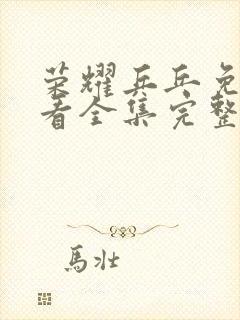 荣耀乒乓免
看全集完整
馬壮